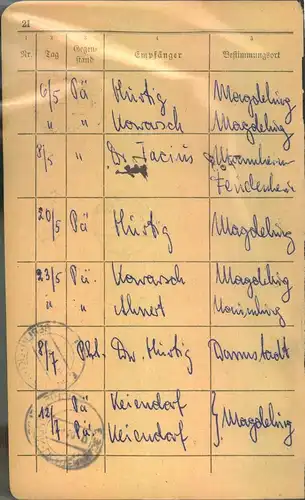 21
1 2 3 4 5
Nr. Tag Gegenstand Empfänger Bestimmungsort
6/5 Pä Hurtig Magdeburg
" " Kowarsch Magdeburg
8/5 " Dr. Jacius Mannheim
Feudenheim
20/5 Pä Hurtig Magdeburg
23/5 Pä. Kowarsch Magdeburg
" " Ahnert Naumburg
8/7 Dr. Hurtig Darmstadt
12/7 Pä Keiendorf Magdeburg
Pä Keiendorf